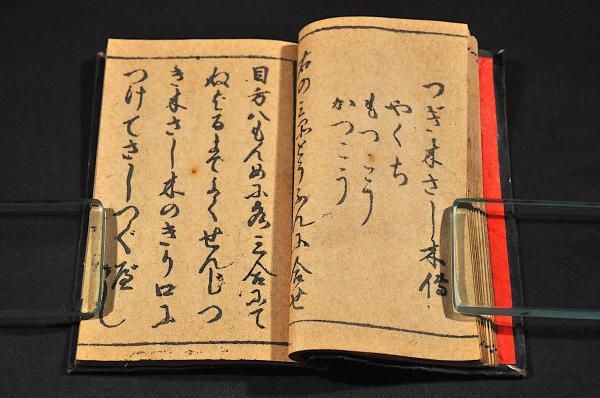 つぎ木さし木傳
やくち
もつこう
かつこう
右の三品とうふんに合せ
目方八もんめ水三合にて
ねばるまでよくせんじつ
き木さし木のきり口に
つけてさしつぐ